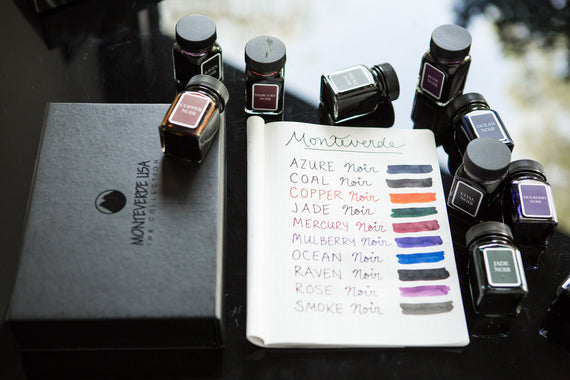 COPPER
NOIR
MERCURY
NOIR
SMOKE
NOIR
ROSE
NOIR
OCEAN
NOIR
COAL
NOIR
MULBERRY
NOIR
JADE
NOIR
MONTEVERDE USA
INK COLLECTION
Monteverde
AZURE Noir
COAL Noir
COPPER Noir
JADE Noir
MERCURY Noir
MULBERRY Noir
OCEAN Noir
RAVEN Noir
ROSE Noir
SMOKE Noir